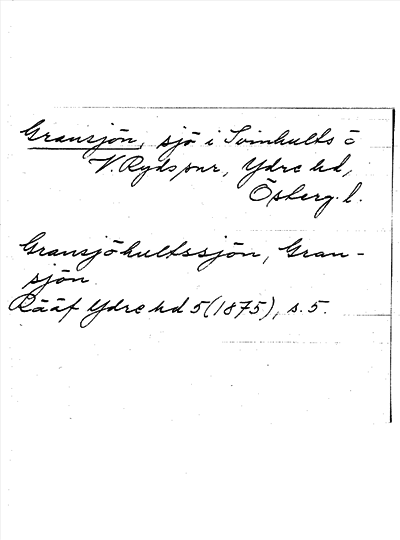 Gransjön, sjö i Svinhults o
V. Ryds snr, Ydre hd,
Östерg. l.
Gransjöhultssjön, Gran-
sjön
Rääf Ydre hd 5 (1875), s. 5.